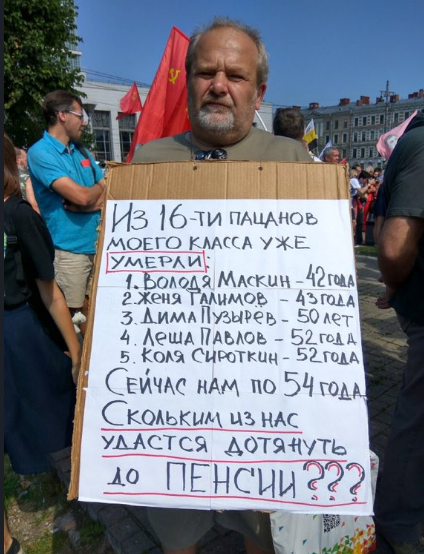 Из 16-ти пацанов
моего класса уже
умерли:
1. Володя Маскин - 42 года
2. Женя Галимов - 43 года
3. Дима Пузырёв - 50 лет
4. Леша Павлов - 52 года
5. Коля Сироткин - 52 года
Сейчас нам по 54 года
Скольким из нас
удастся дотянуть
до ПЕНСИИ???